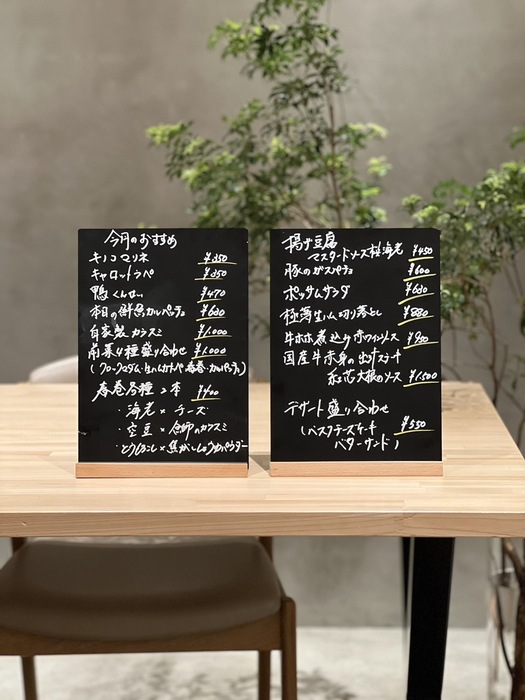 今月のおすすめ
キノコマリネ ¥350
キャロットラペ ¥350
鴨くんせい ¥470
本日の鮮魚カルパッチョ ¥680
自家製カラスミ ¥1,000
前菜4種盛り合わせ ¥1,000
春巻各種2本 ¥400
・海老×チーズ
・空豆×自家製カラスミ
・とうもろこし×焦がししょうゆパウダー
揚げ豆腐
マスタードソース 桜海老 ¥450
豚のガスパチョ ¥600
ポッサムサンダ ¥680
極薄生ハム切り落とし ¥880
牛ホホ煮込み赤ワインソース ¥900
国産牛赤身の ステーキ
紅芯大根のソース ¥1,500
デザート盛り合わせ
(バスクチーズケーキ ¥550
バターサンド)